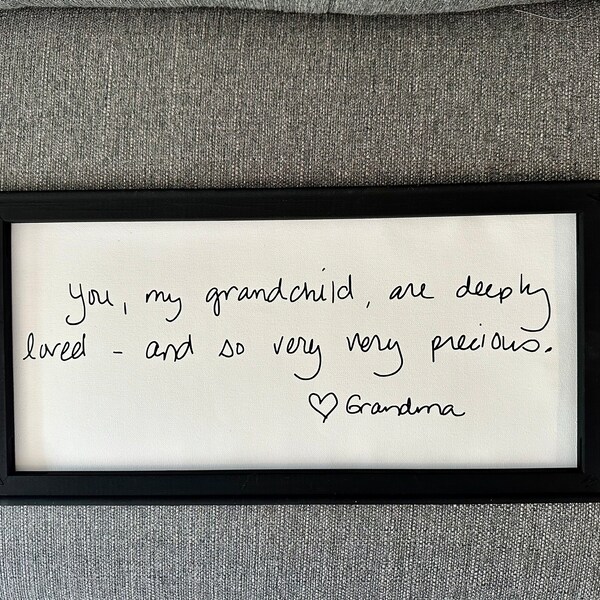 You, my grandchild, are deeply
loved - and so very very precious.
♡ Grandma